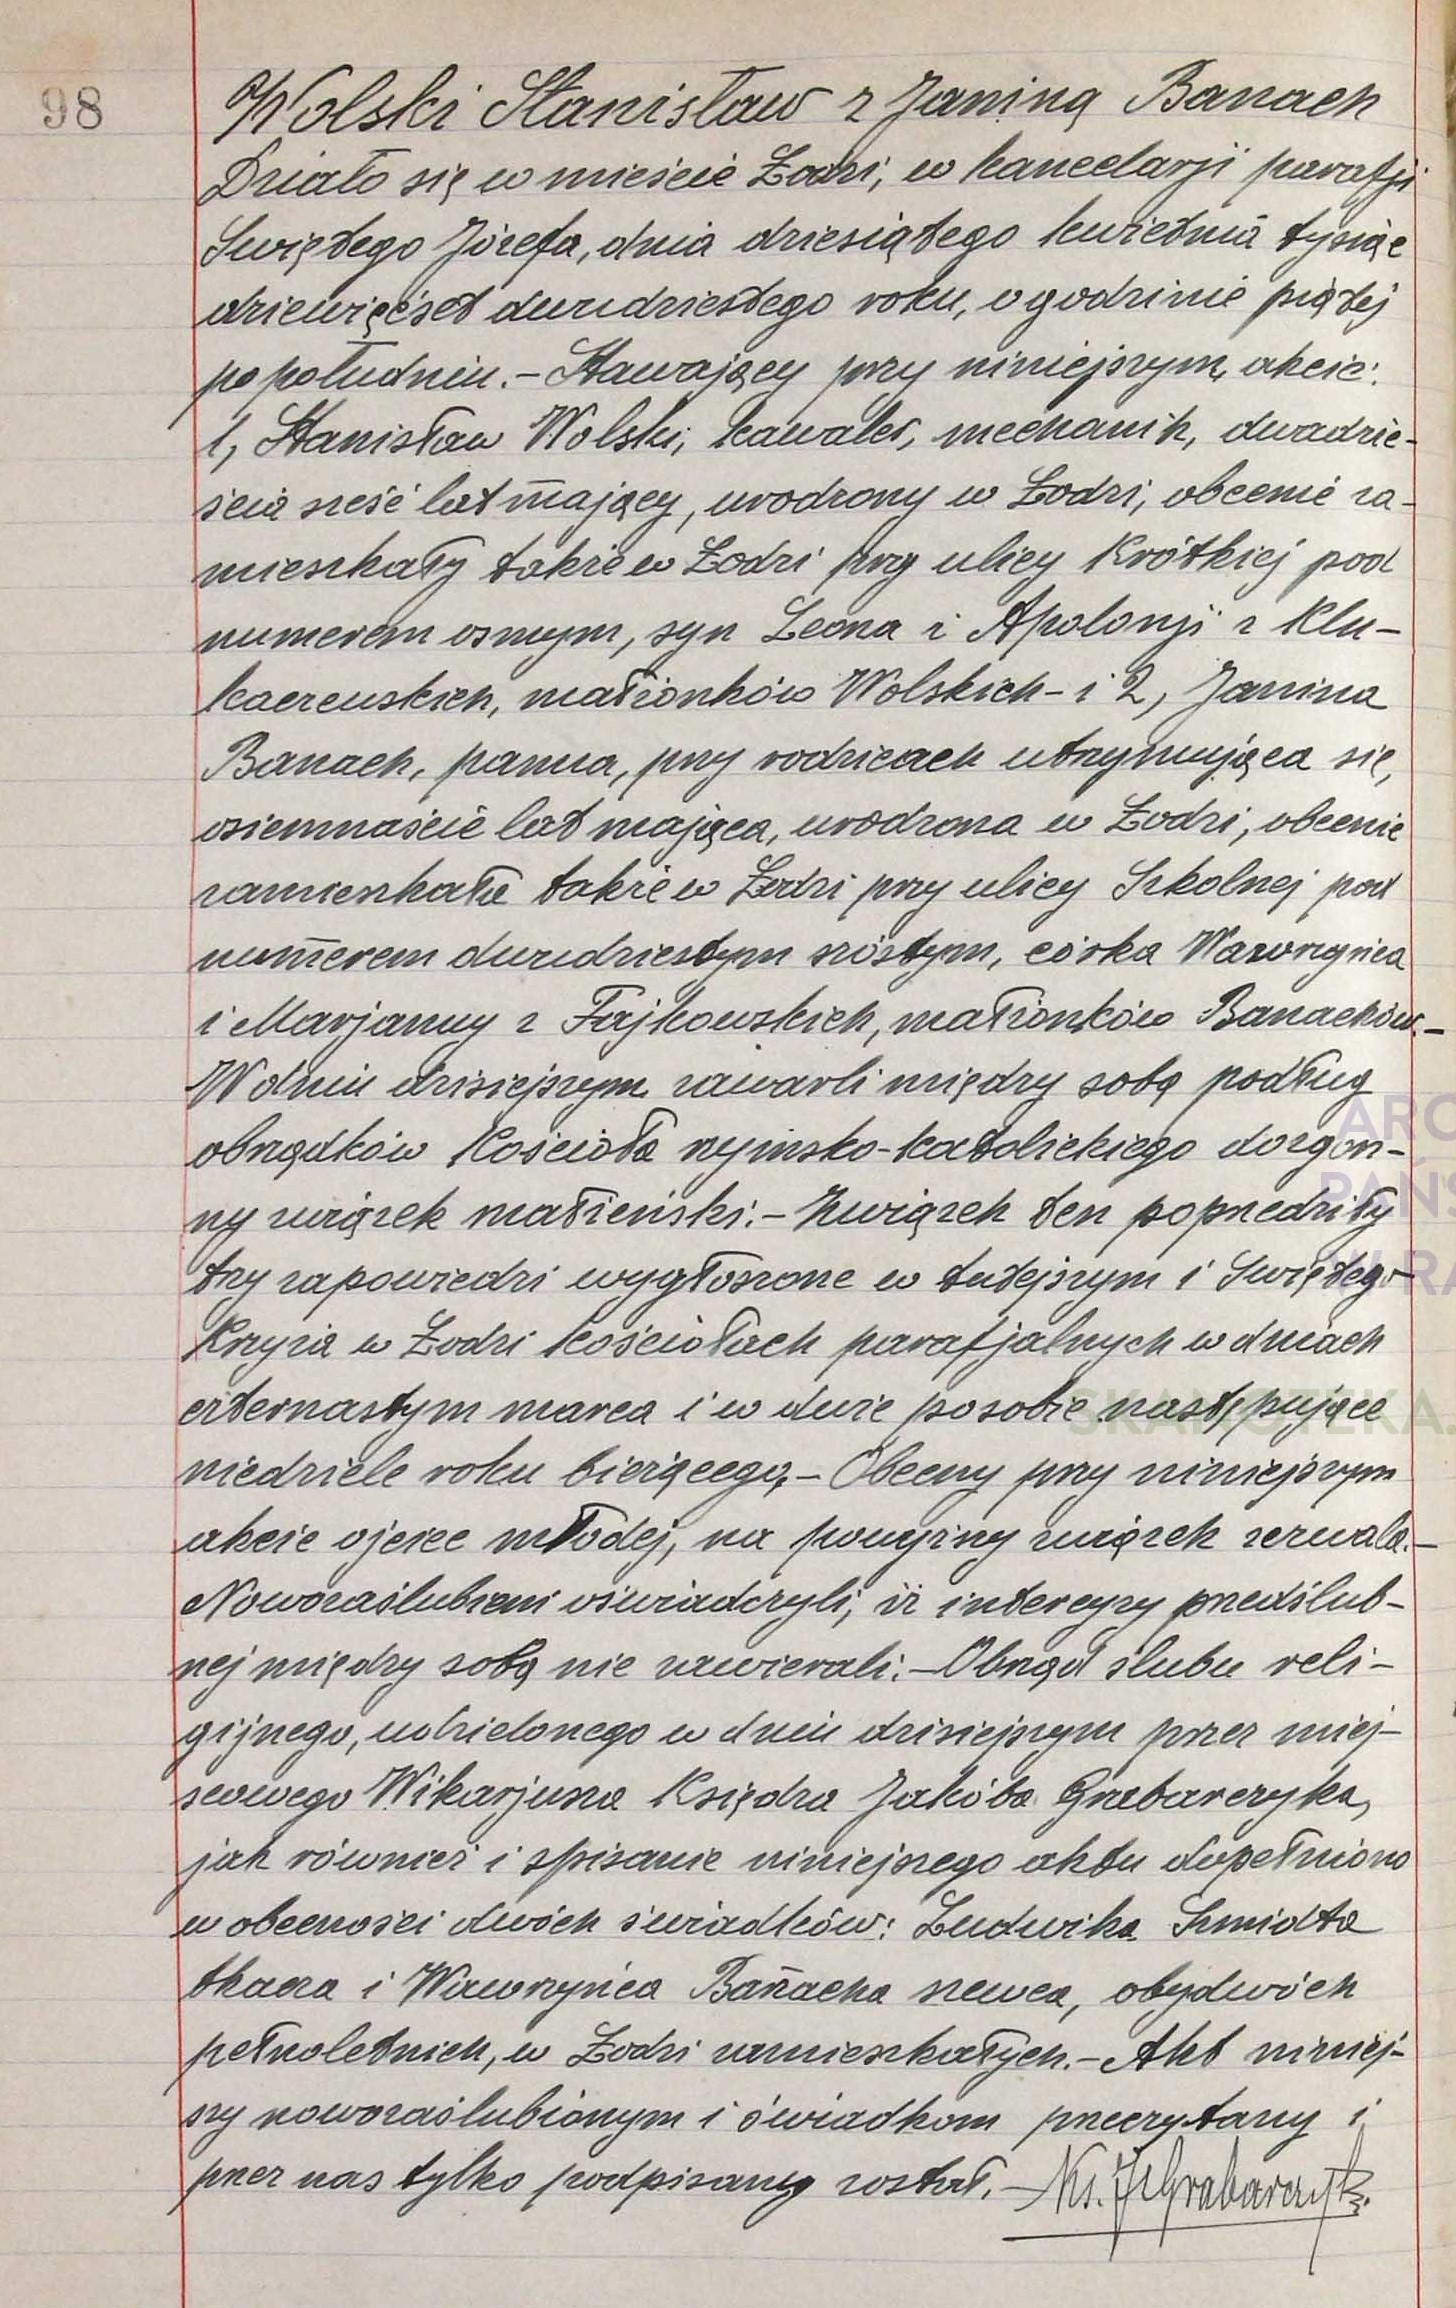 98
Wolski Stanisław z Janiną Banach
Działo się w mieście Łodzi, w kancelarji parafji
Świętego Józefa, dnia dziesiątego kwietnia tysiąc
dziewięćset dwudziestego roku, o godzinie piątej
popołudniu.- Stawający przy niniejszym akcie:
1, Stanisław Wolski, kawaler, mechanik, dwadzie-
ścia sześć lat mający, urodzony w Łodzi, obecnie za-
mieszkały także w Łodzi przy ulicy Krótkiej pod
numerem osmym, syn Leona i Apolonji z Klu-
kaczewskich, małżonków Wolskich- i 2, Janina
Banach, panna, przy rodzicach utrzymująca się,
osiemnaście lat mająca, urodzona w Łodzi, obecnie
zamieszkała także w Łodzi przy ulicy Szkolnej pod
numerem dwudziestym szóstym, córka Wawrzyńca
i Marjanny z Fajkowskich, małżonków Banachów.-
W dniu dzisiejszym zawarli między sobą podług
obrządków Kościoła rzymsko-katolickiego dozgon-
ny związek małżeński.- Związek ten poprzedziły
trzy zapowiedzi wygłoszone w tutejszym i Świętego
Krzyża w Łodzi kościołach parafjalnych w dniach
czternastym marca i w dwie posobie następujące
niedziele roku bieżącego.- Obecny przy niniejszym
akcie ojciec młodej, na powyższy związek zezwala.-
Nowozaślubieni oświadczyli, iż intercyzy przedślub-
nej między sobą nie zawierali.- Obrząd ślubu reli-
gijnego, udzielonego w dniu dzisiejszym przez miej-
scowego Wikarjusza Księdza Jakóba Grabarczyka,
jak również i spisanie niniejszego aktu dopełniono
w obecności dwóch świadków: Ludwika Szmidta
tkacza i Wawrzyńca Banacha szewca, obydwóch
pełnoletnich, w Łodzi zamieszkałych.- Akt niniej-
szy nowozaślubionym i świadkom przeczytany i
przez nas tylko podpisany został. - Ks. J Grabarczyk
ARC
PAŃS
W RA
SKANOTEKA.